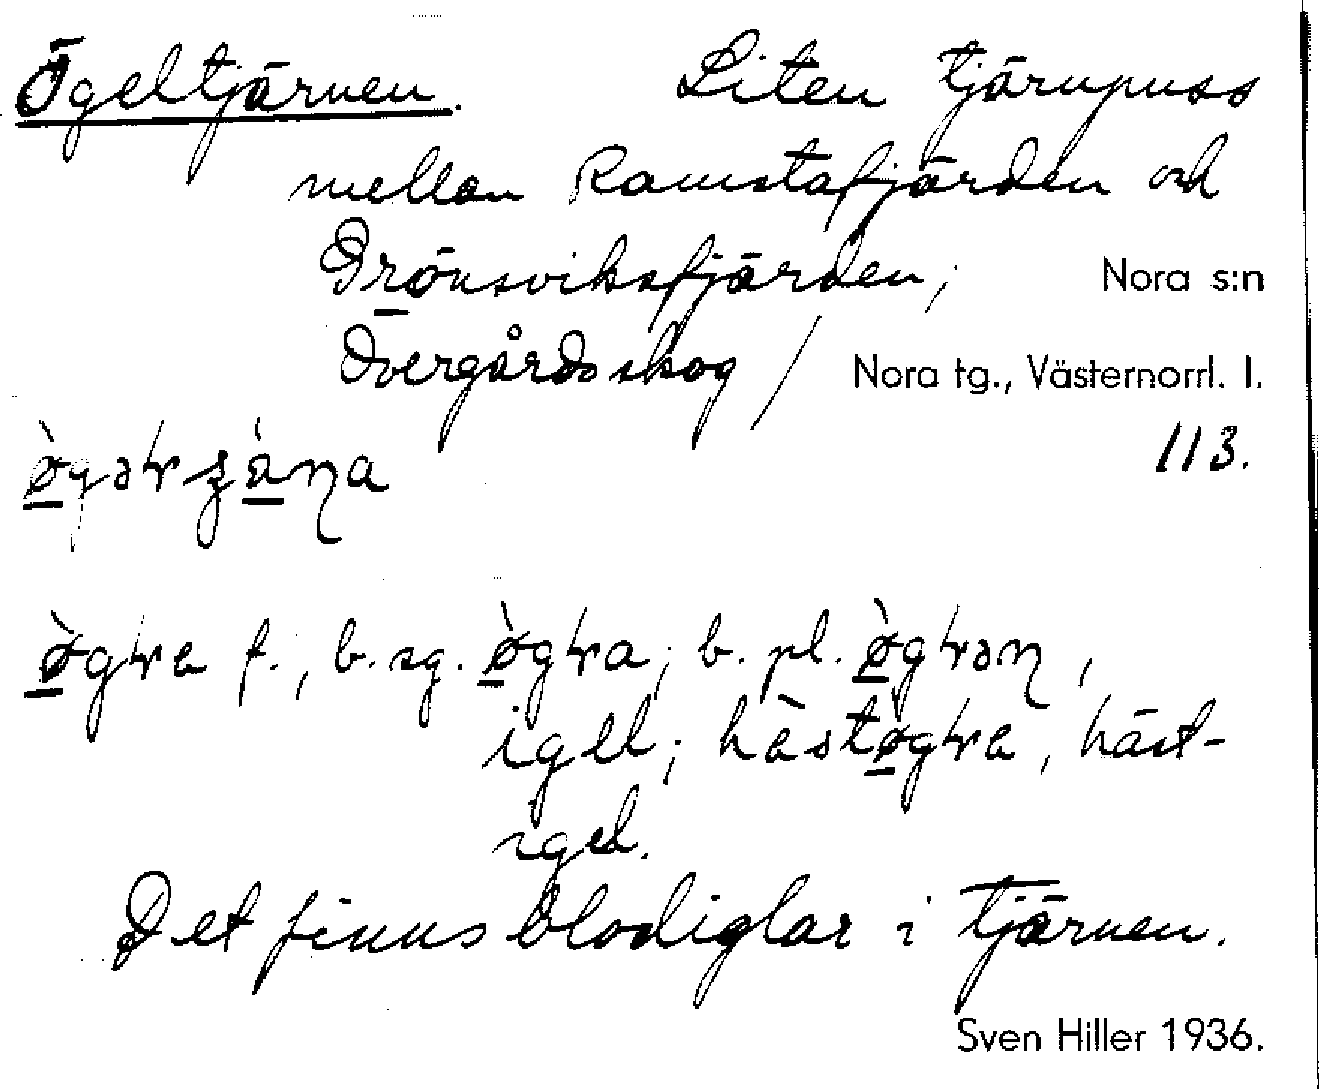 Ögeltjärnen. Liten tjärnpuss
mellan Ramstafjärden och
Drönsviksfjärden; Nora s:n
Övergårdsskog / Nora tg., Västernorrl. l.
113.
f., b. sg. b. pl.
igel; häst-
igel.
Det finns blodiglar i tjärnen.
Sven Hiller 1936.